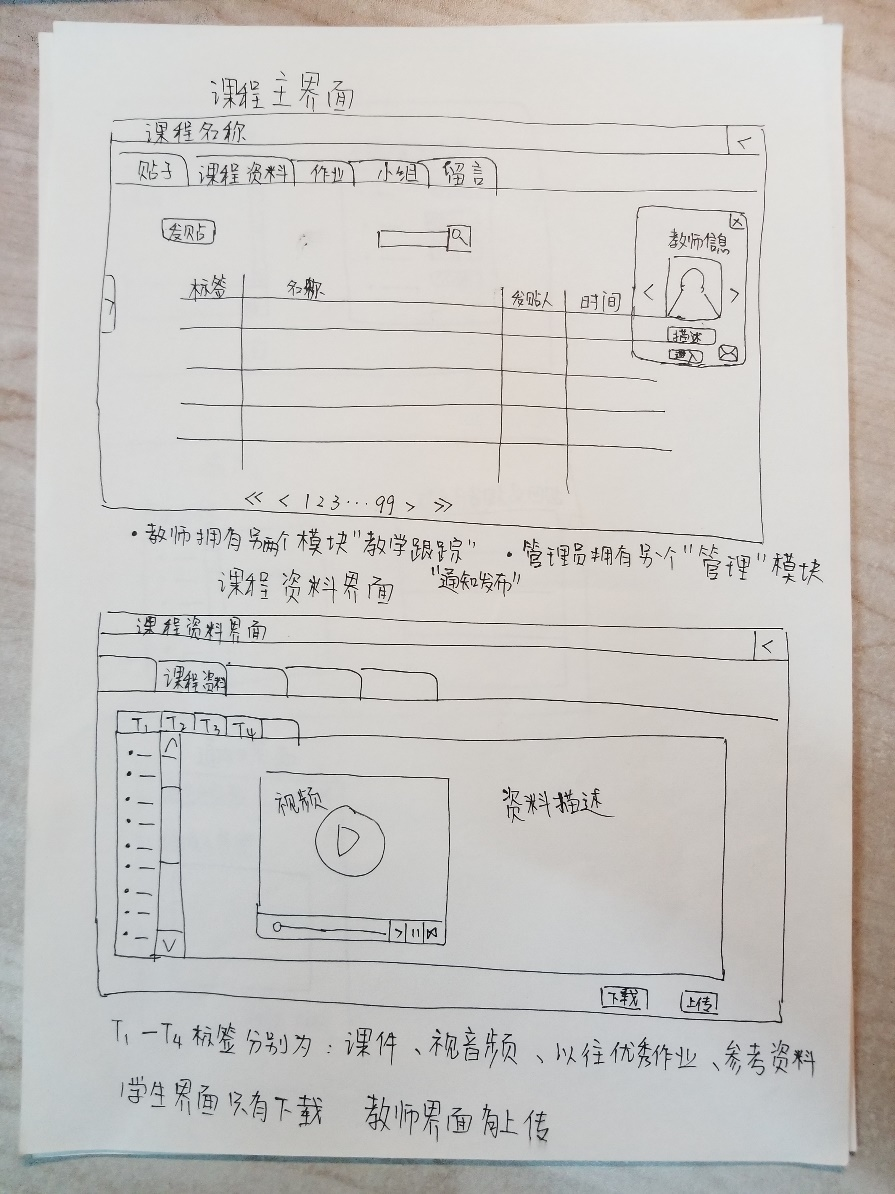 课程主界面
课程名称 <
贴子 课程资料 作业 小组 留言
发贴
教师信息
标签 名称 发贴人 时间
< >
描述
进入
>
<< < 1 2 3 … 99 > >>
·教师拥有另两个模块"教学跟踪" ·管理员拥有另一个"管理"模块
"通知发布"
课程资料界面
课程资料界面 <
课程资料
T1 T2 T3 T4
视频
资料描述
下载 上传
T1—T4标签分别为：课件、视音频、以往优秀作业、参考资料
学生界面只有下载 教师界面有上传